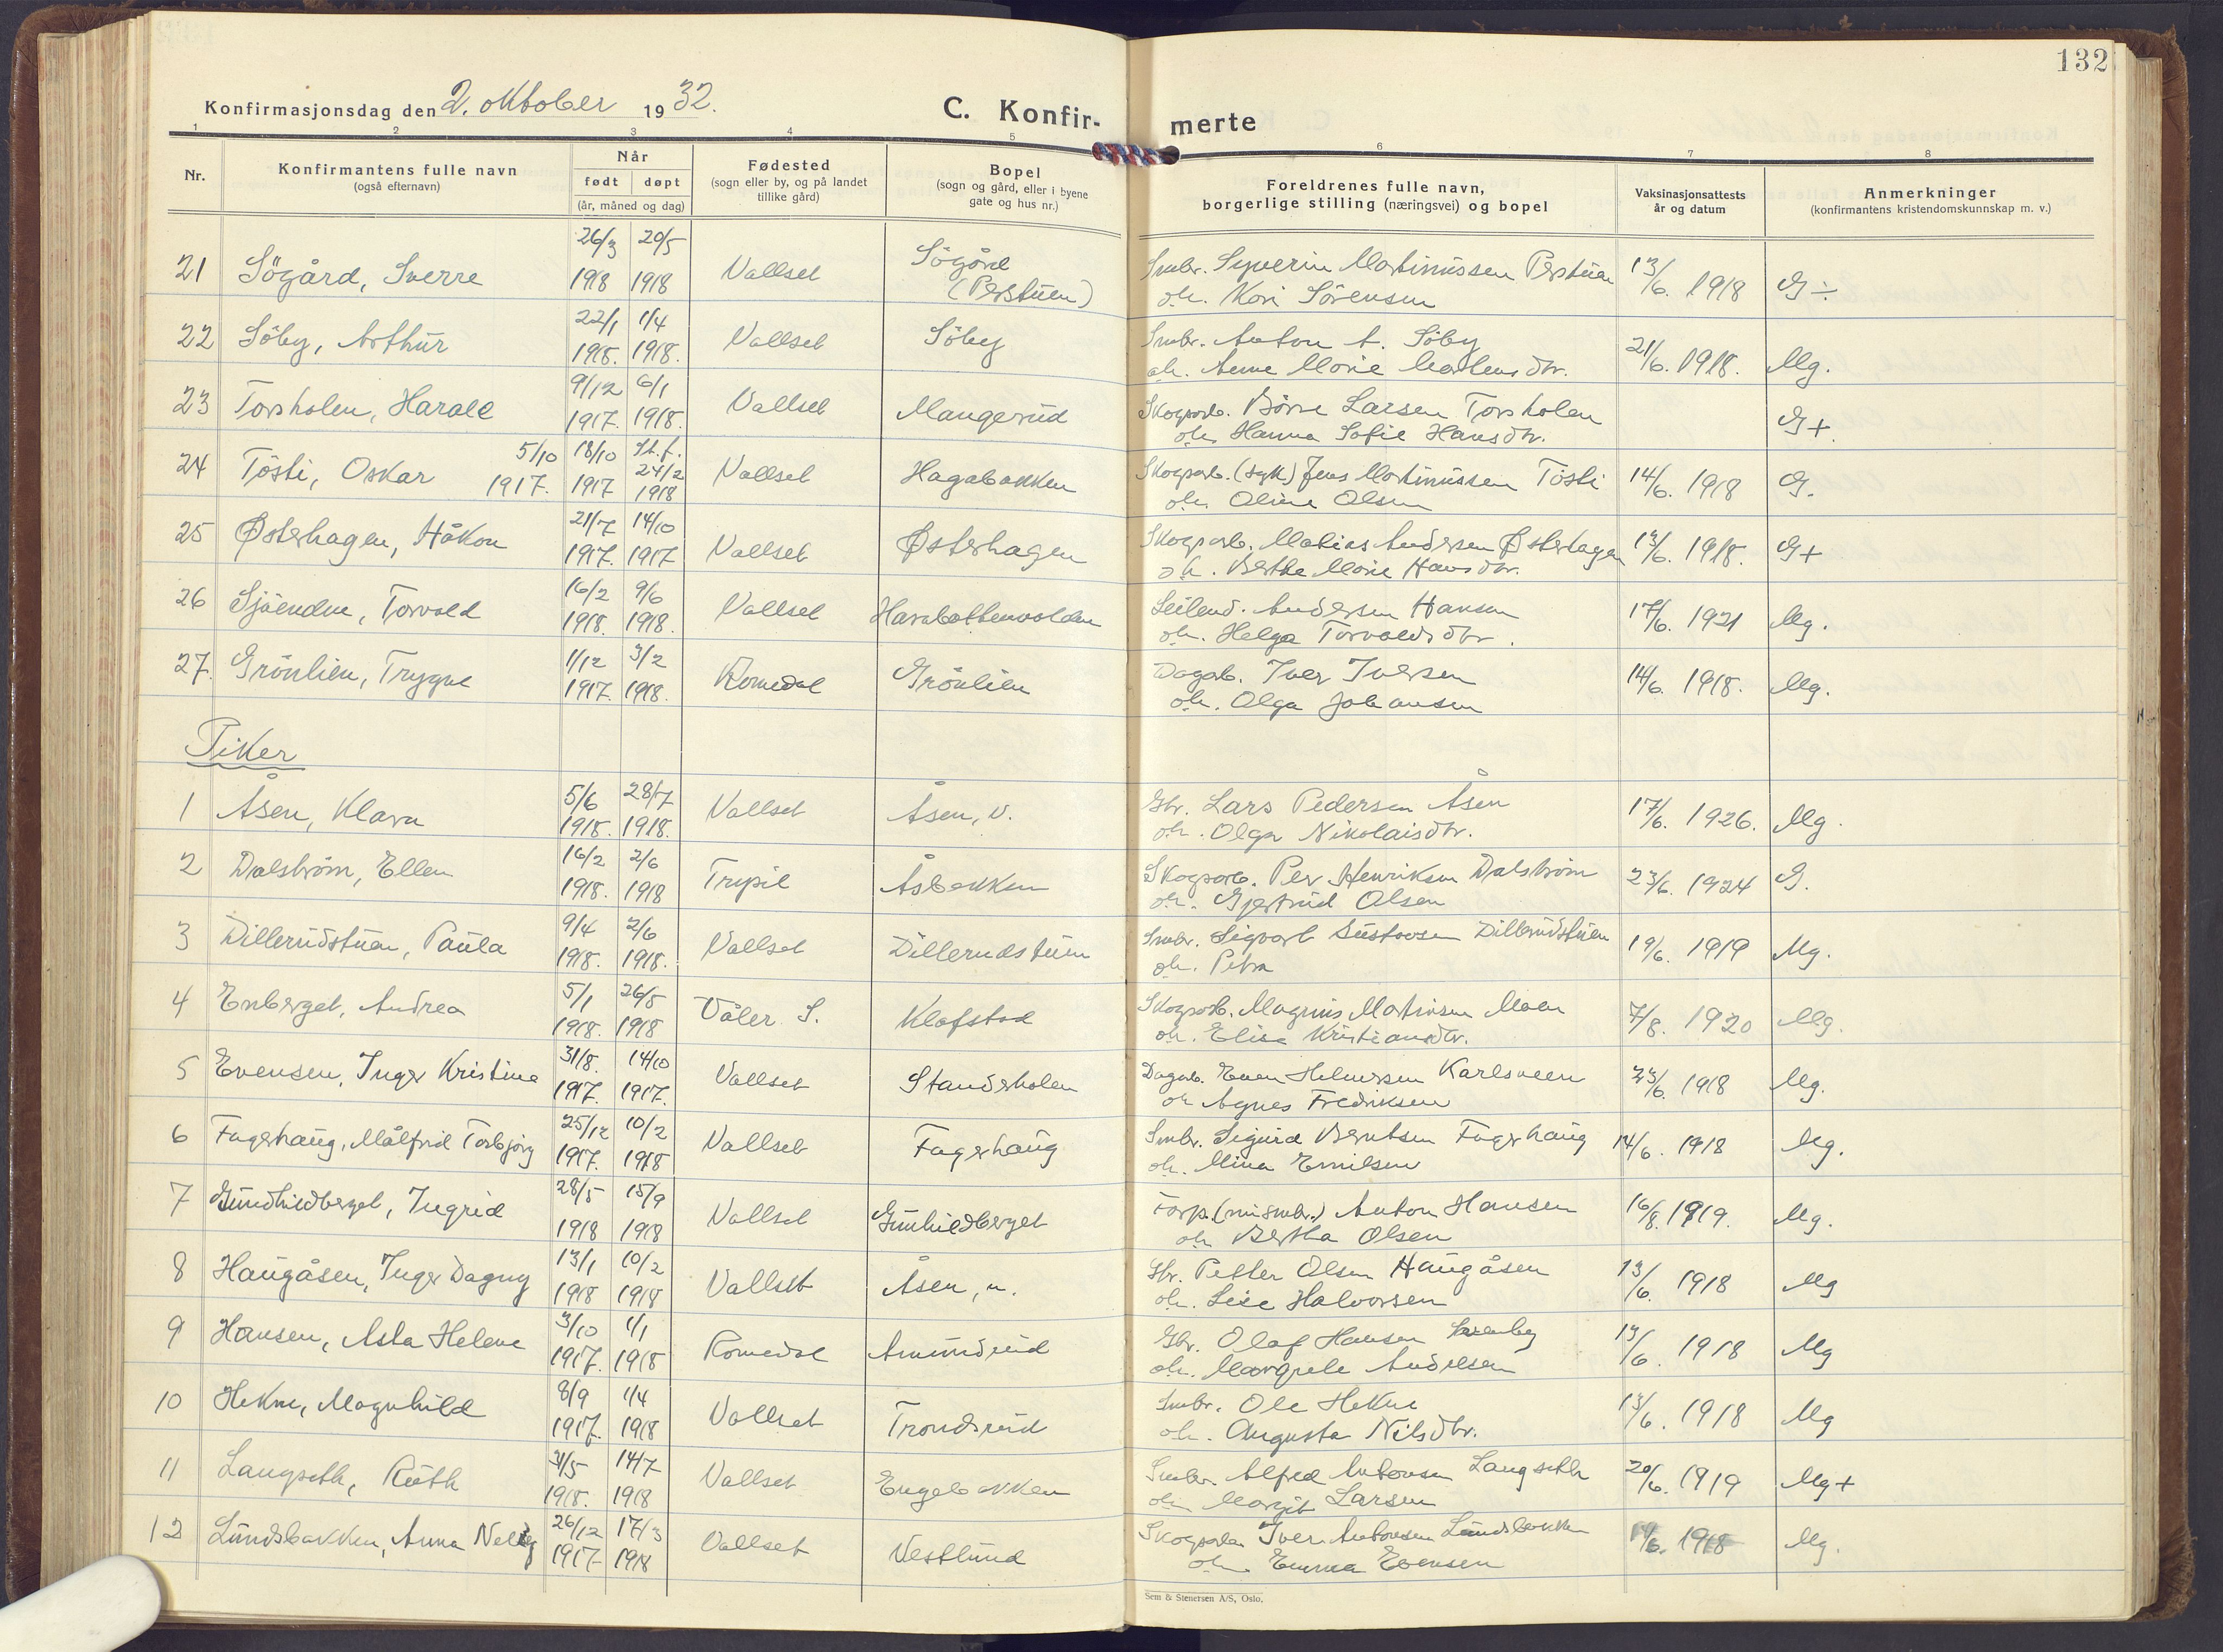 132
Konfirmasjonsdag den 2. oktober 1932.
C. Konfir-
merte
1 2 3 4 5 6 7 8
Nr.
Konfirmantens fulle navn
(også efternavn)
Når
født døpt
(år, måned og dag)
Fødested
(sogn eller by, og på landet
tillike gård)
Bopel
(sogn og gård, eller i byene
gate og hus nr.)
Foreldrenes fulle navn,
borgerlige stilling (næringsvei) og bopel
Vaksinasjonsattests
år og datum
Anmerkninger
(konfirmantens kristendomskunnskap m. v.)
26/3 20/5
21 Søgård, Sverre 1918 1918 Vallset Søgård (Perstuen) Smbr. Syverin Martinussen Perstuen 13/6. 1918 G÷
oh. Kari Sörensen
22/1 1/4
22 Söby, Arthur 1918. 1918. Vallset Söby Smbr. Anton A. Söby 21/6. 1918. Mg.
oh. Anne Marie Martens dtr.
9/12 6/1
23 Torsholen, Harald 1917. 1918. Vallset Mangerud Skogsarb. Börre Larsen Torsholen G+.
oh. Hanna Sofie Hansdtr.
5/10 18/10 St.f. 24/2
24 Tösti, Oskar 1917. 1917 1918 Vallset Hagabakken Skogsarb. (syk) Jens Martinussen Tösti 14/6. 1918 G.
oh. Oline Olsen
21/7 14/10
25 Østerhagen, Håkon 1917. 1917 Vallset Østerhagen Skogsarb. Matias Andersen Østerhagen 13/6. 1918. G+
oh. Berthe Marie Hansdtr.
16/2 9/6
26 Sjöenden, Torvald 1918. 1918. Vallset Harabattenvolden Leilend. Andersen Hansen 17/6. 1921 Mg.
oh. Helga Torvaldsdtr.
1/12 3/2
27. Grönlien, Trygve 1917. 1918. Romedal Grönlien Dagarb. Iver Iversen 14/6. 1918. Mg.
oh. Olga Johansen
Piker
5/6 28/7
1 Åsen, Klara 1918. 1918. Vallset Åsen, v. Gbr. Lars Pedersen Åsen 17/6. 1926. Mg.
oh. Olga Nikolaisdtr.
16/2 2/6
2 Dalström, Ellen 1918. 1918 Trysil Åsbakken Skogsarb. Per Henriksen Dalström 23/6. 1924 G.
oh. Gjertrud Olsen
9/4 2/6
3 Dillerudstuen, Paula 1918. 1918. Vallset Dillerudstuen Smbr. Sigvart Gustavsen Dillerudstuen 19/6. 1919 Mg.
oh. Petra
5/1 26/5
4 Enberget, Andrea 1918. 1918 Våler S. Klafstad Skogsarb. Magnus Martinsen Moen 7/8. 1920 Mg.
oh. Elise Kristiansdtr.
31/8. 14/10
5 Evensen, Inger Kristine 1917. 1917. Vallset Standerholen Dagarb. Even Helmersen Karlsveen 23/6. 1918 Mg.
oh Agnes Fredriksen
25/12 10/2
6 Fagerhaug, Målfrid Torbjörg 1917. 1918 Vallset Fagerhaug Smbr. Sigurd Berntsen Fagerhaug 14/6. 1918 Mg.
oh. Mina Emilsen
28/5 15/9
7 Gundhildberget, Ingrid 1918 1918 Vallset Gunhildberget Torp. (nu smbr.) Anton Hansen 16/8. 1919. Mg.
oh Bertha Olsen
13/1 10/2
8 Haugåsen, Inger Dagny 1918 1918 Vallset Åsen, n. Gbr. Petter Olsen Haugåsen 13/6. 1918 Mg
oh. Lise Halvorsen
3/10 1/1
9 Hansen, Asta Helene 1917. 1918 Romedal Amundrud Gbr. Olaf Hansen 13/6. 1918 Mg
oh. Margrete Andersen
8/9 1/4
10 Hekne, Magnhild 1917. 1918 Vallset Trondsrud Smbr. Ole Hekne 13/6. 1918 Mg
oh. Augusta Nilsdtr.
31/5 14/7
11 Langseth, Ruth 1918. 1918 Vallset Engebakken Smbr. Alfred Antonsen Langseth 20/6. 1919 Mg+
oh Margit Larsen
26/12 17/3
12 Lundsbakken, Anna Nelly 1917 1918 Vallset Vestlund Skogsarb. Iver Antonsen Lundsbakken 19/6. 1918 Mg.
oh. Emma Evensen
Sem & Stenersen A/S, Oslo.